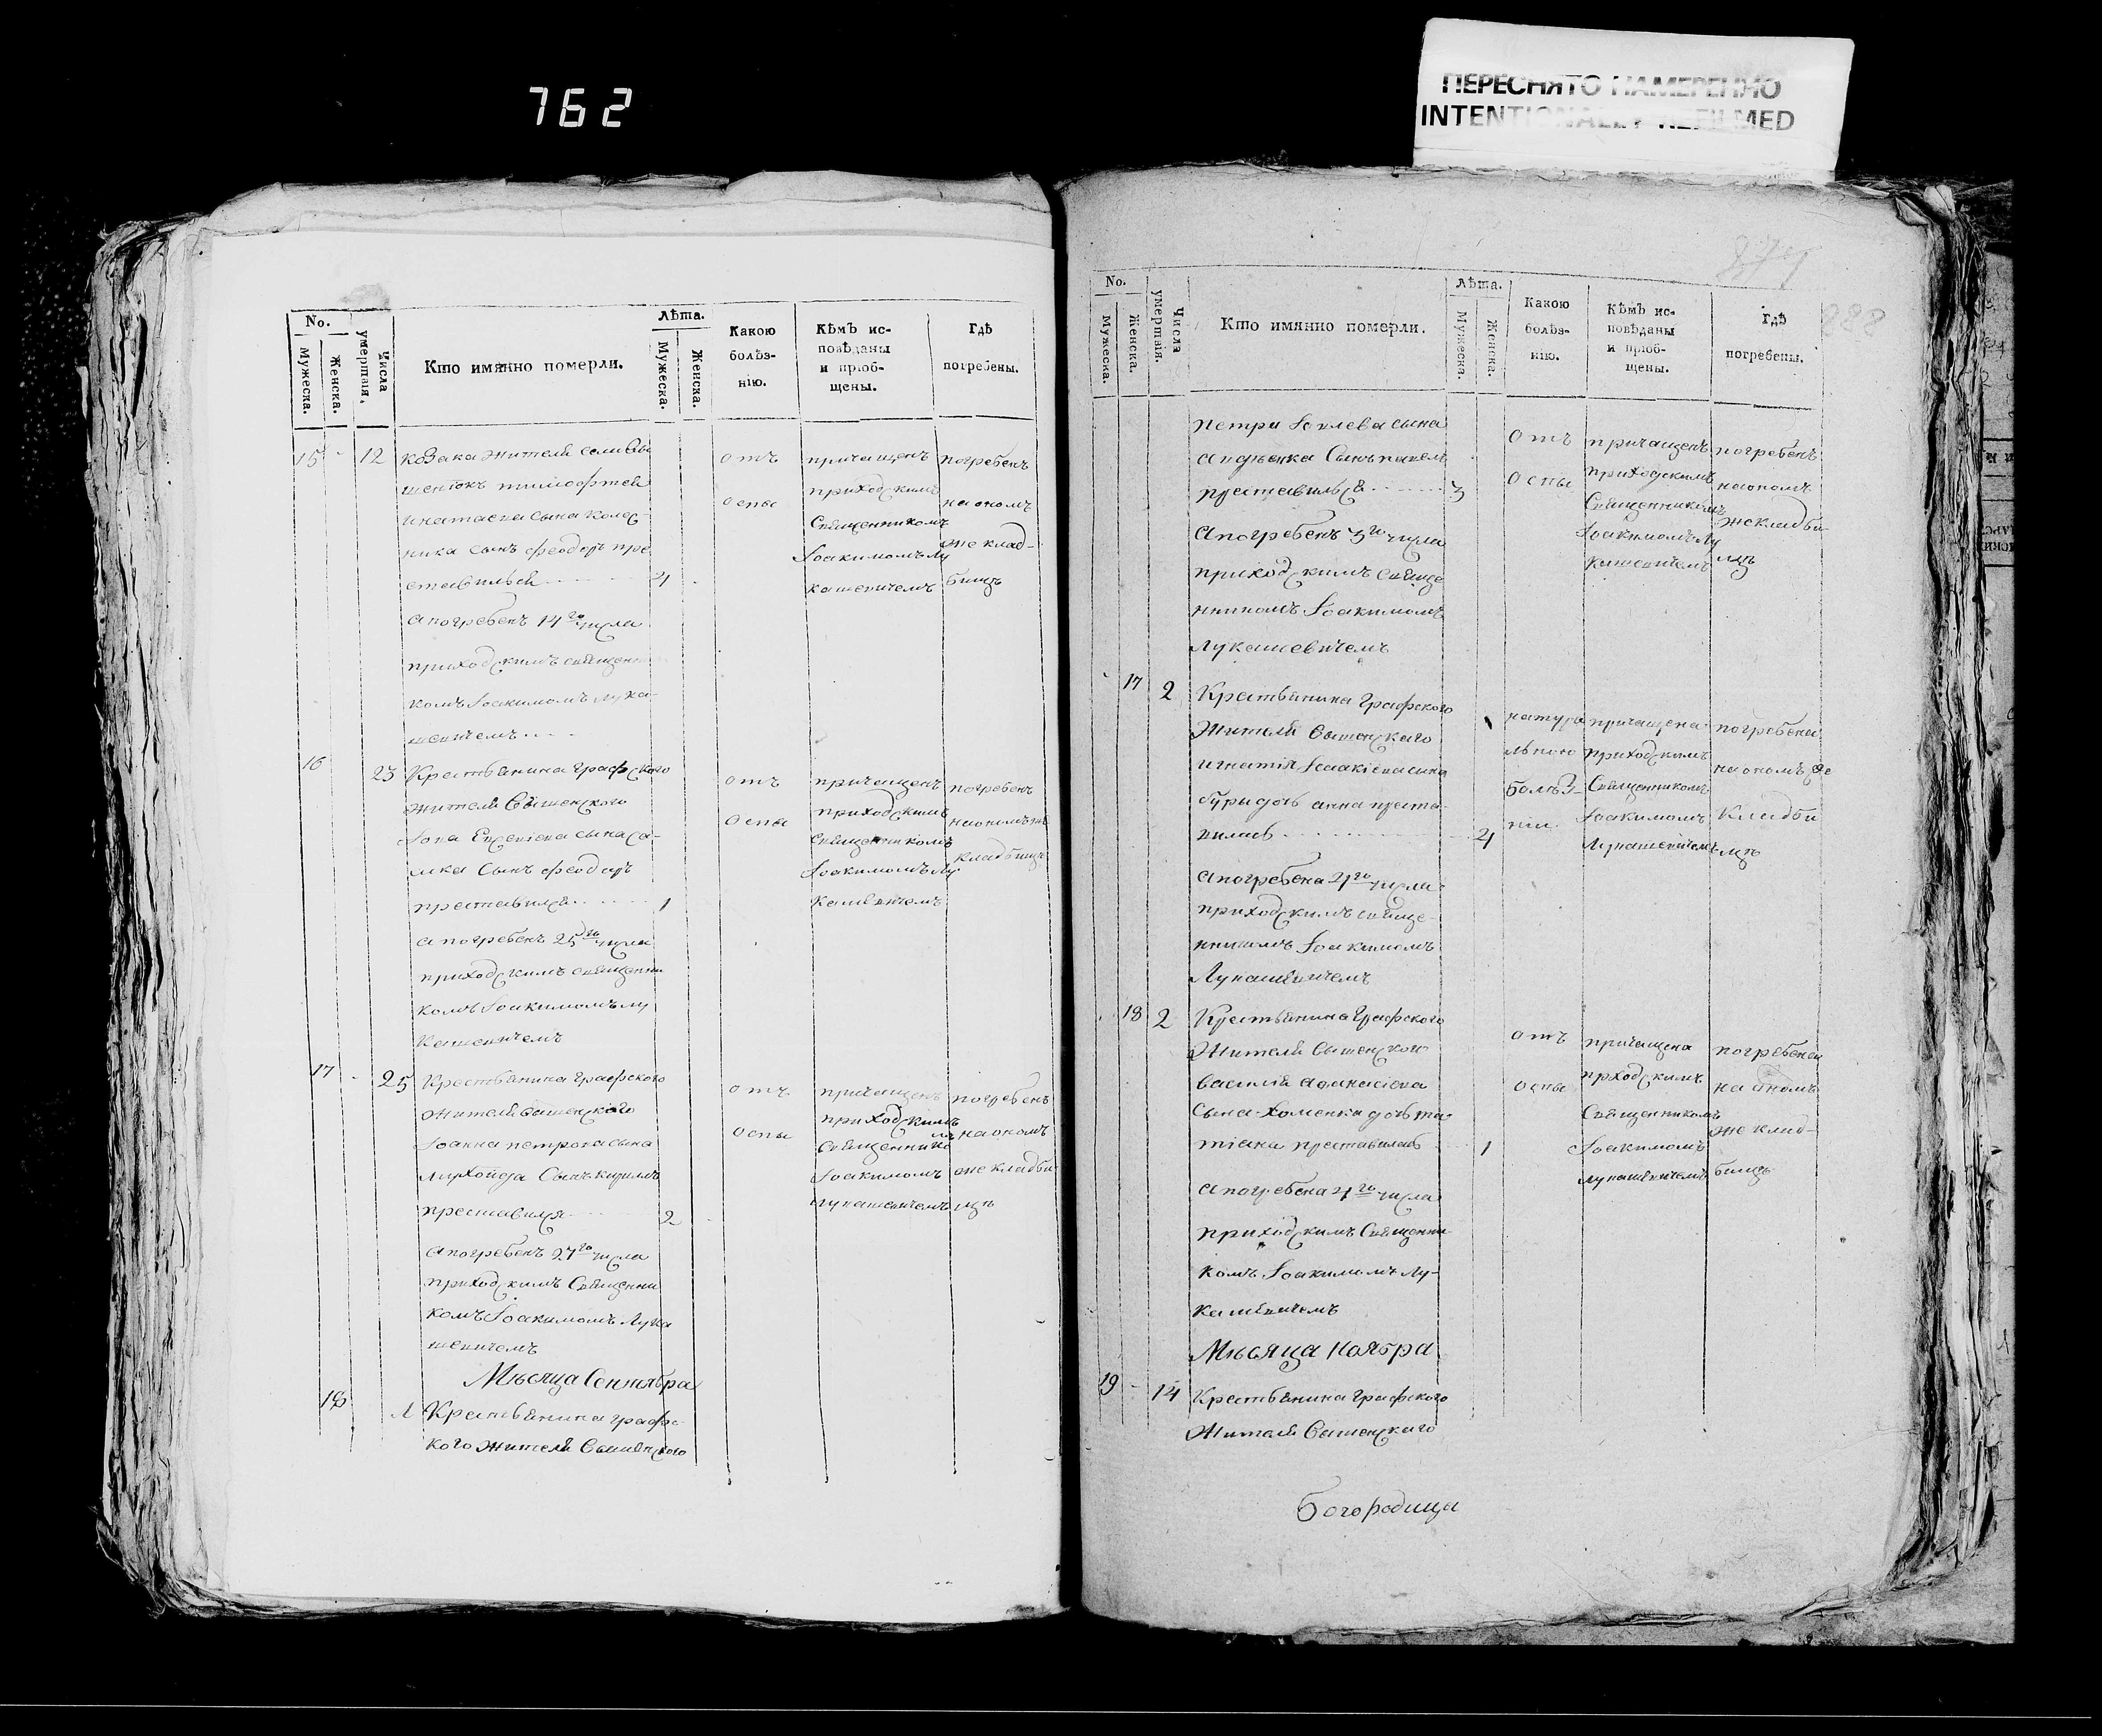 762
ПЕРЕСНЯТО НАМЕРЕННО
INTENTIONALLY REFILMED
No.
Мужеска.
Женска.
Числа умертвія.
Кто имянно померли.
Лѣта.
Мужеска.
Женска.
Какою болѣз-
нію.
Кѣмъ ис-
повѣданы
и пріоб-
щены.
Гдѣ
погребены.
15 12 козака жителя
тимофтея
сына колес-
ника сынъ феодоръ пре
ставилься 4
а погребенъ 14го числа
приходскимъ священни
комъ Iоакимомъ лука
шевичемъ
отъ
оспы
причащенъ
приходскимъ
Священникомъ
Iоакимомъ Лу
кашевичемъ
погребенъ
на ономъ
же клад-
бищѣ
16 23 Крестьянина графского
жителя
Iова сына
сынъ феодоръ
преставился 1
а погребенъ 25го числа
приходскимъ священни
комъ Iоакимомъ лу
кашевичемъ
отъ
оспы
причащенъ
приходскимъ
священникомъ
Iоакимомъ Лу
кашевичемъ
погребенъ
на ономъ же
кладбищѣ
17 25 Крестьянина графского
жителя
Iоанна петрова сына
Сынъ кирилъ
преставился 2
а погребенъ 27го числа
приходскимъ Священни
комъ Iоакимомъ Лука
шевичемъ
отъ
оспы
причащенъ
приходскимъ
Священникомъ
Iоакимомъ
лукашевичемъ
погребенъ
на ономъ
же кладби
щѣ
Мѣсяца Сентября
18 1 Крестьянина графс-
кого жителя
No.
Мужеска.
Женска.
Числа умертвія.
Кто имянно померли.
Лѣта.
Мужеска.
Женска.
Какою
болѣз-
нію.
Кѣмъ ис-
повѣданы
и пріоб-
щены.
Гдѣ
погребены.
петра сына
Сынъ павелъ
преставилься 3
а погребенъ 3го числа
приходскимъ свяще
нникомъ Iоакимомъ
лукашевичемъ
отъ
оспы
причащенъ
приходскимъ
Священникомъ
Iоакимомъ Лу
кашевичемъ
погребенъ
на ономъ
же кладби-
щѣ
17 2 Крестьянина графского
Жителя
игнатія Iсаакіева сына
дочь анна преста-
вилась 4
а погребена 4го числа
приходскимъ свяще-
нникомъ Iоакимомъ
Лукашевичемъ
натура
льною
болѣз-
ніи
причащена
приходскимъ
Священникомъ
Iоакимомъ
Лукашевичемъ
погребена
на ономъ же
Кладби
щѣ
18 2 Крестьянина графского
Жителя
василія афанасіева
сына хоменка дочь та-
тіана преставилась 1
а погребена 4го числа
приходскимъ Священни-
комъ Iоакимомъ Лу-
кашевичемъ
отъ
оспы
причащена
приходскимъ
Священникомъ
Iоакимомъ
лукашевичемъ
погребена
на ономъ
же клад-
бищѣ
Мѣсяца Ноября
19 14 Крестьянина графского
Жителя
богородица